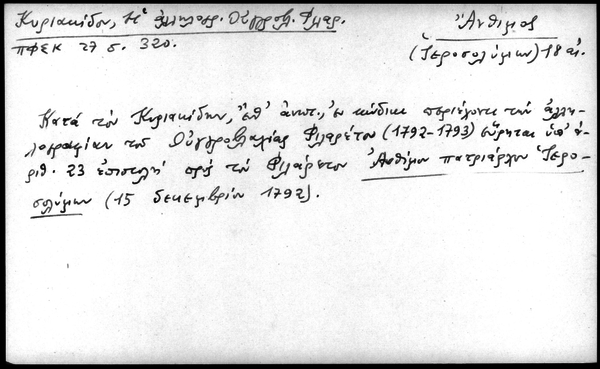 Κυριακίδου, Ἡ ἀλληλογρ. Οὑγγροβλ. Φιλαρ.
ΠΦΣΚ 27 σ. 320.
Ἄνθιμος
(Ἱεροσολύμων) 18 αἰ.
Κατὰ τὸν Κυριακίδην, ἔνθ' ἀνωτ., ἐν κώδικι περιέχοντι τὴν ἀλλη-
λογραφίαν τοῦ Οὑγγροβλαχίας Φιλαρέτου (1792-1793) εὕρηται ὑπ' ἀ-
ριθ. 23 ἐπιστολὴ πρὸς τὸν Φιλάρετον Ἀνθίμου πατριάρχου Ἱερο-
σολύμων (15 δεκεμβρίου 1792).